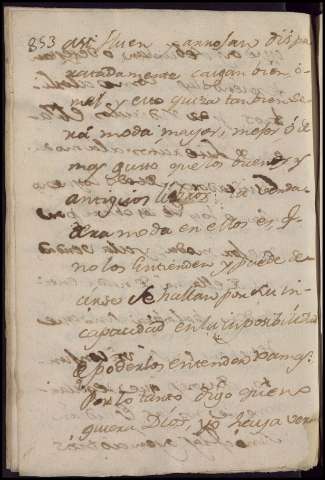 853
assi suenen y anno san dispa
ratadamente caigan bien, ô
mal, y esto quiza tambien se
rà moda, mayor, mejor ô de
mas gusto que los buenos y
antiguos libros: la verda
dera moda en ellos es, q
no los entienden y puede de
cirse se hallan por su in
capacidad en la imposibilidad
de poderlos entender jamas:
Por lo tanto digo que no
quiera Dios, yo haya